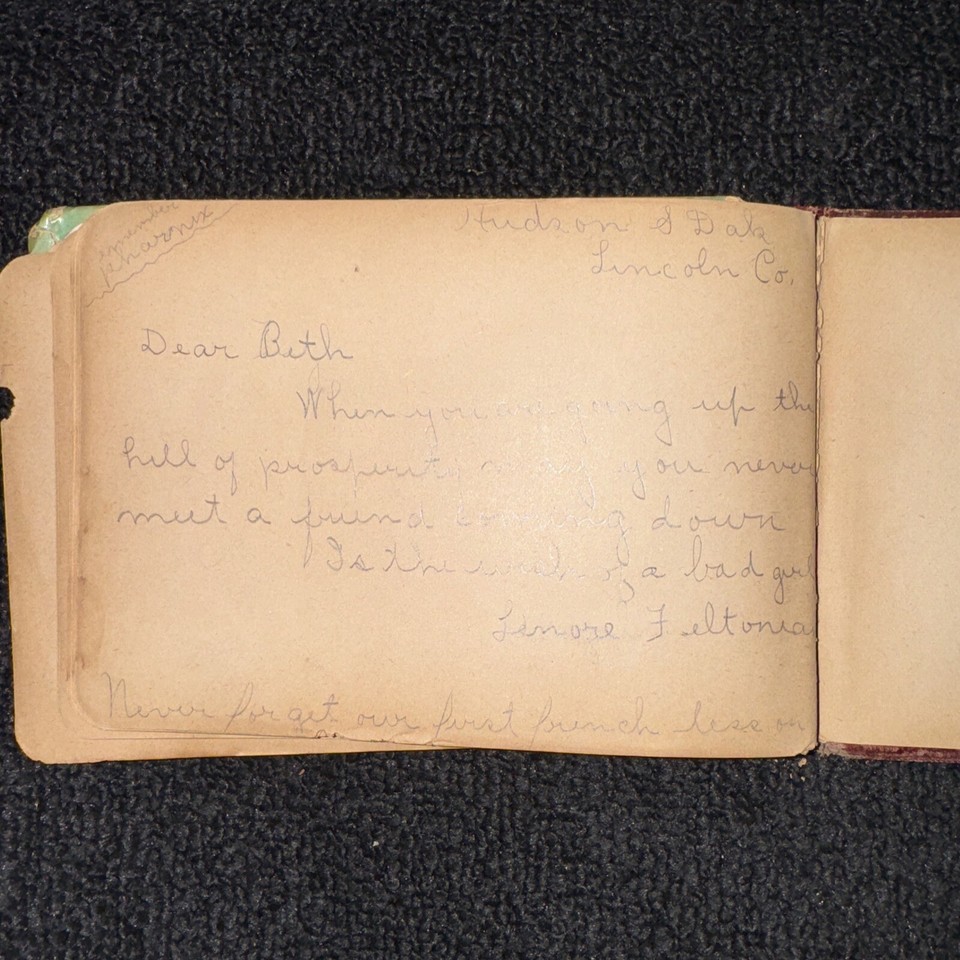 emember
Hudson S Dak
Lincoln Co.
Dear Beth
When you are going up the
hill of prosperity may you never
meet a friend comeing down
Is the wish of a bad girl
Lenore Feltonia
Never forget our first french lesson